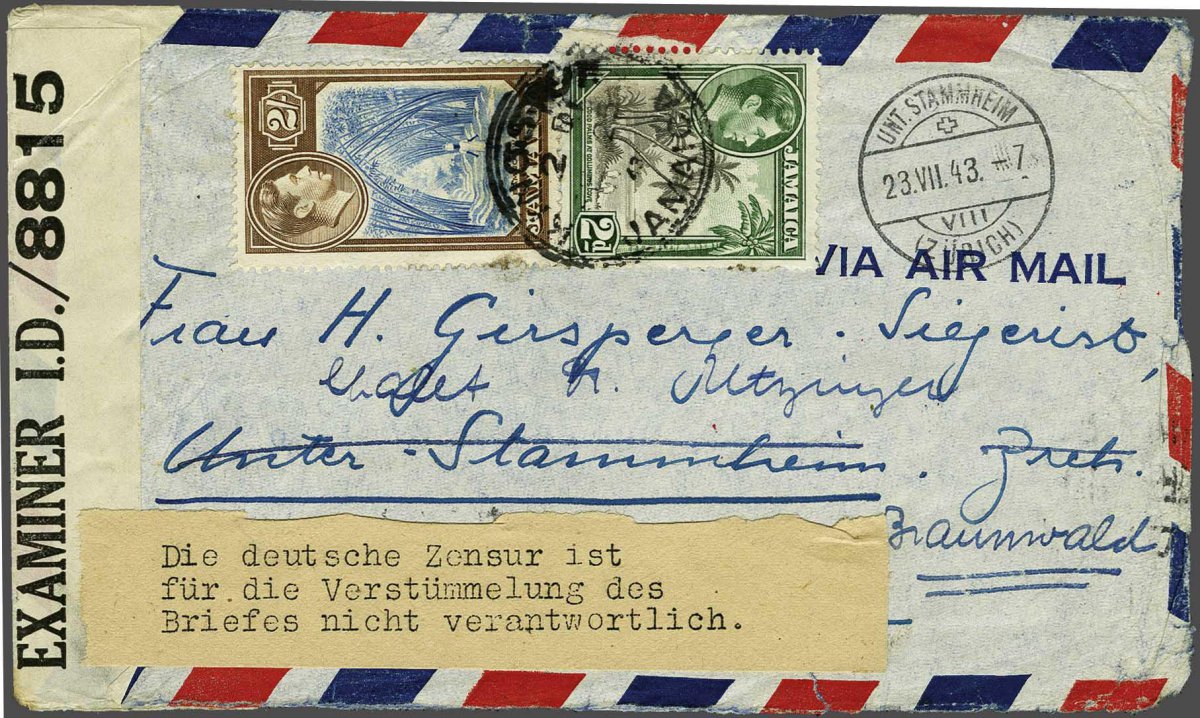 EXAMINER I.D./8815
2/-
JAMAICA
2d
JAMAICA
JAMAICA
UNT. STAMMHEIM
23.VII.43. 7
VIII
(ZÜRICH)
VIA AIR MAIL
Frau H. Girsperger - Siegerist,
Unter-Stammheim. Zrch.
Braunwald
Die deutsche Zensur ist
für die Verstümmelung des
Briefes nicht verantwortlich.